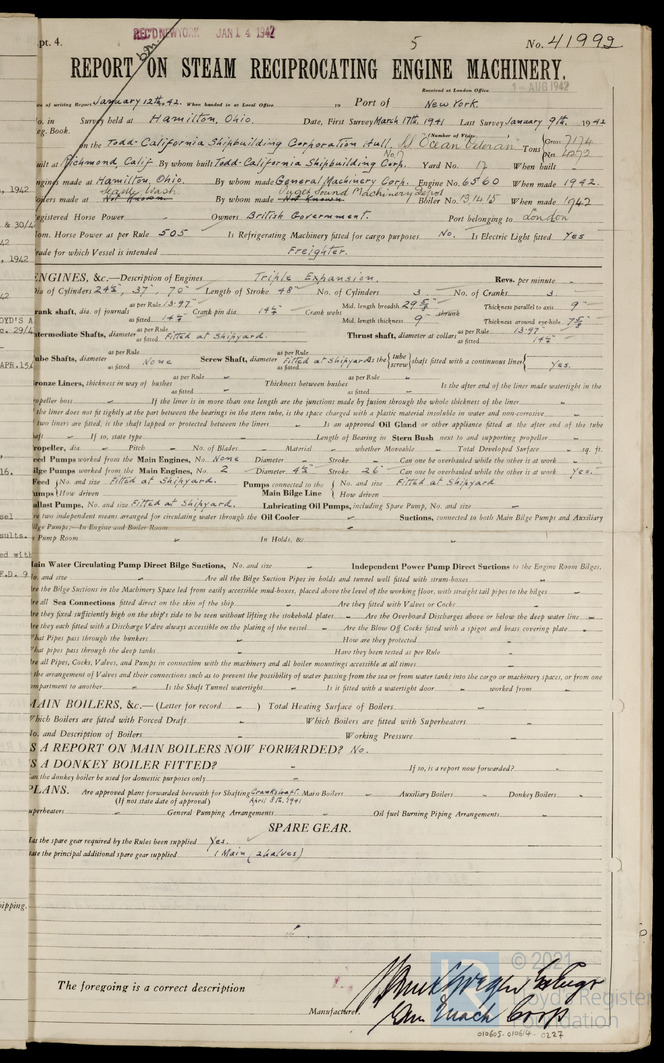 REC'D NEW YORK JAN 14 1942
pt. 4.
5
No. 41992
REPORT ON STEAM RECIPROCATING ENGINE MACHINERY.
Received at London Office
1 - AUG 1942
of writing Report January 12th, 42. When handed in at Local Office 19 Port of New York.
No. in Survey held at Hamilton, Ohio. Date, First Survey March 17th, 1941 Last Survey January 9th. 1942
Reg. Book. (Number of Visits
on the Todd-California Shipbuilding Corporation Hull No. 17 Ocean Veteran Tons Gross 7174 Net
built at Richmond, Calif By whom built Todd-California Shipbuilding Corp. Yard No. 17 When built
Engines made at Hamilton, Ohio. By whom made General Machinery Corp. Engine No. 6560 When made 1942.
Boilers made at Seattle Wash. Not Known By whom made Puget Sound Machinery Depot Not Known. Boiler No. 13,14,15 When made 1942
Registered Horse Power Owners British Government. Port belonging to London
Nom. Horse Power as per Rule 505 Is Refrigerating Machinery fitted for cargo purposes No. Is Electric Light fitted Yes
Trade for which Vessel is intended Freighter.
ENGINES, &c.—Description of Engines Triple Expansion. Revs. per minute
Dia of Cylinders 24½", 37", 70" Length of Stroke 48" No. of Cylinders 3. No. of Cranks 3.
Crank shaft, dia. of journals as per Rule 13.97 as fitted 14½" Crank pin dia. 14½" Crank webs Mid. length breadth Mid. length thickness 9" shrunk Thickness parallel to axis 9" Thickness around eye-hole
Intermediate Shafts, diameter as per Rule as fitted Fitted at Shipyard. Thrust shaft, diameter at collars as per Rule 13.97 as fitted 14½"
Tube Shafts, diameter as per Rule as fitted None Screw Shaft, diameter as per Rule as fitted Fitted at Shipyard Is the tube screw shaft fitted with a continuous liner Yes.
Bronze Liners, thickness in way of bushes as per Rule as fitted Thickness between bushes as per Rule as fitted Is the after end of the liner made watertight in the
propeller boss If the liner is in more than one length are the junctions made by fusion through the whole thickness of the liner
If the liner does not fit tightly at the part between the bearings in the stern tube, is the space charged with a plastic material insoluble in water and non-corrosive
If two liners are fitted, is the shaft lapped or protected between the liners Is an approved Oil Gland or other appliance fitted at the after end of the tube
shaft If so, state type Length of Bearing in Stern Bush next to and supporting propeller
Propeller, dia. Pitch No. of Blades Material whether Moveable Total Developed Surface sq. ft.
Feed Pumps worked from the Main Engines, No. None Diameter Stroke Can one be overhauled while the other is at work
Bilge Pumps worked from the Main Engines, No. 2 Diameter 4½" Stroke 26" Can one be overhauled while the other is at work Yes.
Feed Pumps No. and size Fitted at Shipyard. How driven Pumps connected to the Main Bilge Line No. and size Fitted at Shipyard How driven
Ballast Pumps, No. and size Fitted at Shipyard. Lubricating Oil Pumps, including Spare Pump, No. and size
Are two independent means arranged for circulating water through the Oil Cooler Suctions, connected to both Main Bilge Pumps and Auxiliary
Bilge Pumps:—In Engine and Boiler Room
Pump Room In Holds, &c
Main Water Circulating Pump Direct Bilge Suctions, No. and size Independent Power Pump Direct Suctions to the Engine Room Bilges,
No. and size Are all the Bilge Suction Pipes in holds and tunnel well fitted with strum-boxes
Are the Bilge Suctions in the Machinery Space led from easily accessible mud-boxes, placed above the level of the working floor, with straight tail pipes to the bilges
Are all Sea Connections fitted direct on the skin of the ship Are they fitted with Valves or Cocks
Are they fixed sufficiently high on the ship's side to be seen without lifting the stokehold plates Are the Overboard Discharges above or below the deep water line
Are they each fitted with a Discharge Valve always accessible on the plating of the vessel Are the Blow Off Cocks fitted with a spigot and brass covering plate
What Pipes pass through the bunkers How are they protected
What pipes pass through the deep tanks Have they been tested as per Rule
Are all Pipes, Cocks, Valves, and Pumps in connection with the machinery and all boiler mountings accessible at all times
Is the arrangement of Valves and their connections such as to prevent the possibility of water passing from the sea or from water tanks into the cargo or machinery spaces, or from one
compartment to another Is the Shaft Tunnel watertight Is it fitted with a watertight door worked from
MAIN BOILERS, &c.—(Letter for record ) Total Heating Surface of Boilers
Which Boilers are fitted with Forced Draft Which Boilers are fitted with Superheaters
No. and Description of Boilers Working Pressure
IS A REPORT ON MAIN BOILERS NOW FORWARDED? No.
IS A DONKEY BOILER FITTED? If so, is a report now forwarded?
Can the donkey boiler be used for domestic purposes only
PLANS. Are approved plans forwarded herewith for Shafting Crankshaft. Main Boilers Auxiliary Boilers Donkey Boilers
(If not state date of approval) April 8th, 1941
Superheaters General Pumping Arrangements Oil fuel Burning Piping Arrangements
SPARE GEAR.
Has the spare gear required by the Rules been supplied Yes.
State the principal additional spare gear supplied 1 Main (2 halves)
The foregoing is a correct description
Manufacturer.
© 2021
Lloyd's Register
Foundation
010605-010614-0227